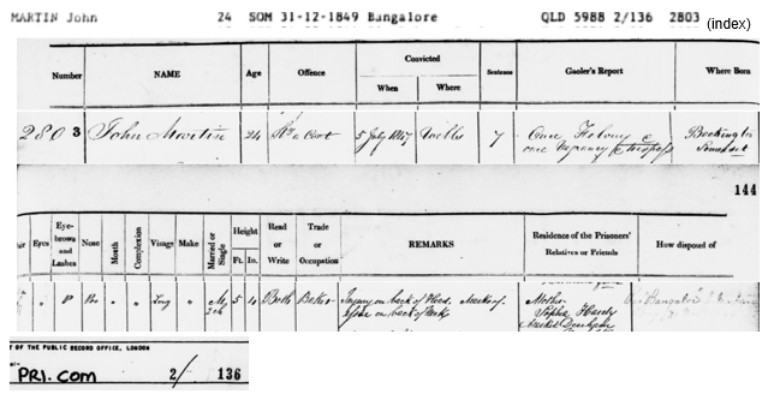 MARTIN John 24 SOM 31-12-1849 Bangalore QLD 5988 2/136 2803 (index)
Number NAME Age Offence Convicted When Where Sentence Gaoler's Report Where Born
2803 John Martin 24 a Coat 5 July 1847 Wells 7 One Felony &
one Vagrancy Somerset
144
Eyes Eye-brows and Lashes Nose Mouth Complexion Visage Make Married or Single Height Ft. In. Read or Write Trade or Occupation REMARKS Residence of the Prisoners' Relatives or Friends How disposed of
" Long " M 5 Both Baker Injury on back of Head. Marks of Mother
on back of Neck Sophia Hardy
2 ch Market
T OF THE PUBLIC RECORD OFFICE, LONDON
PRI.COM 2/ 136